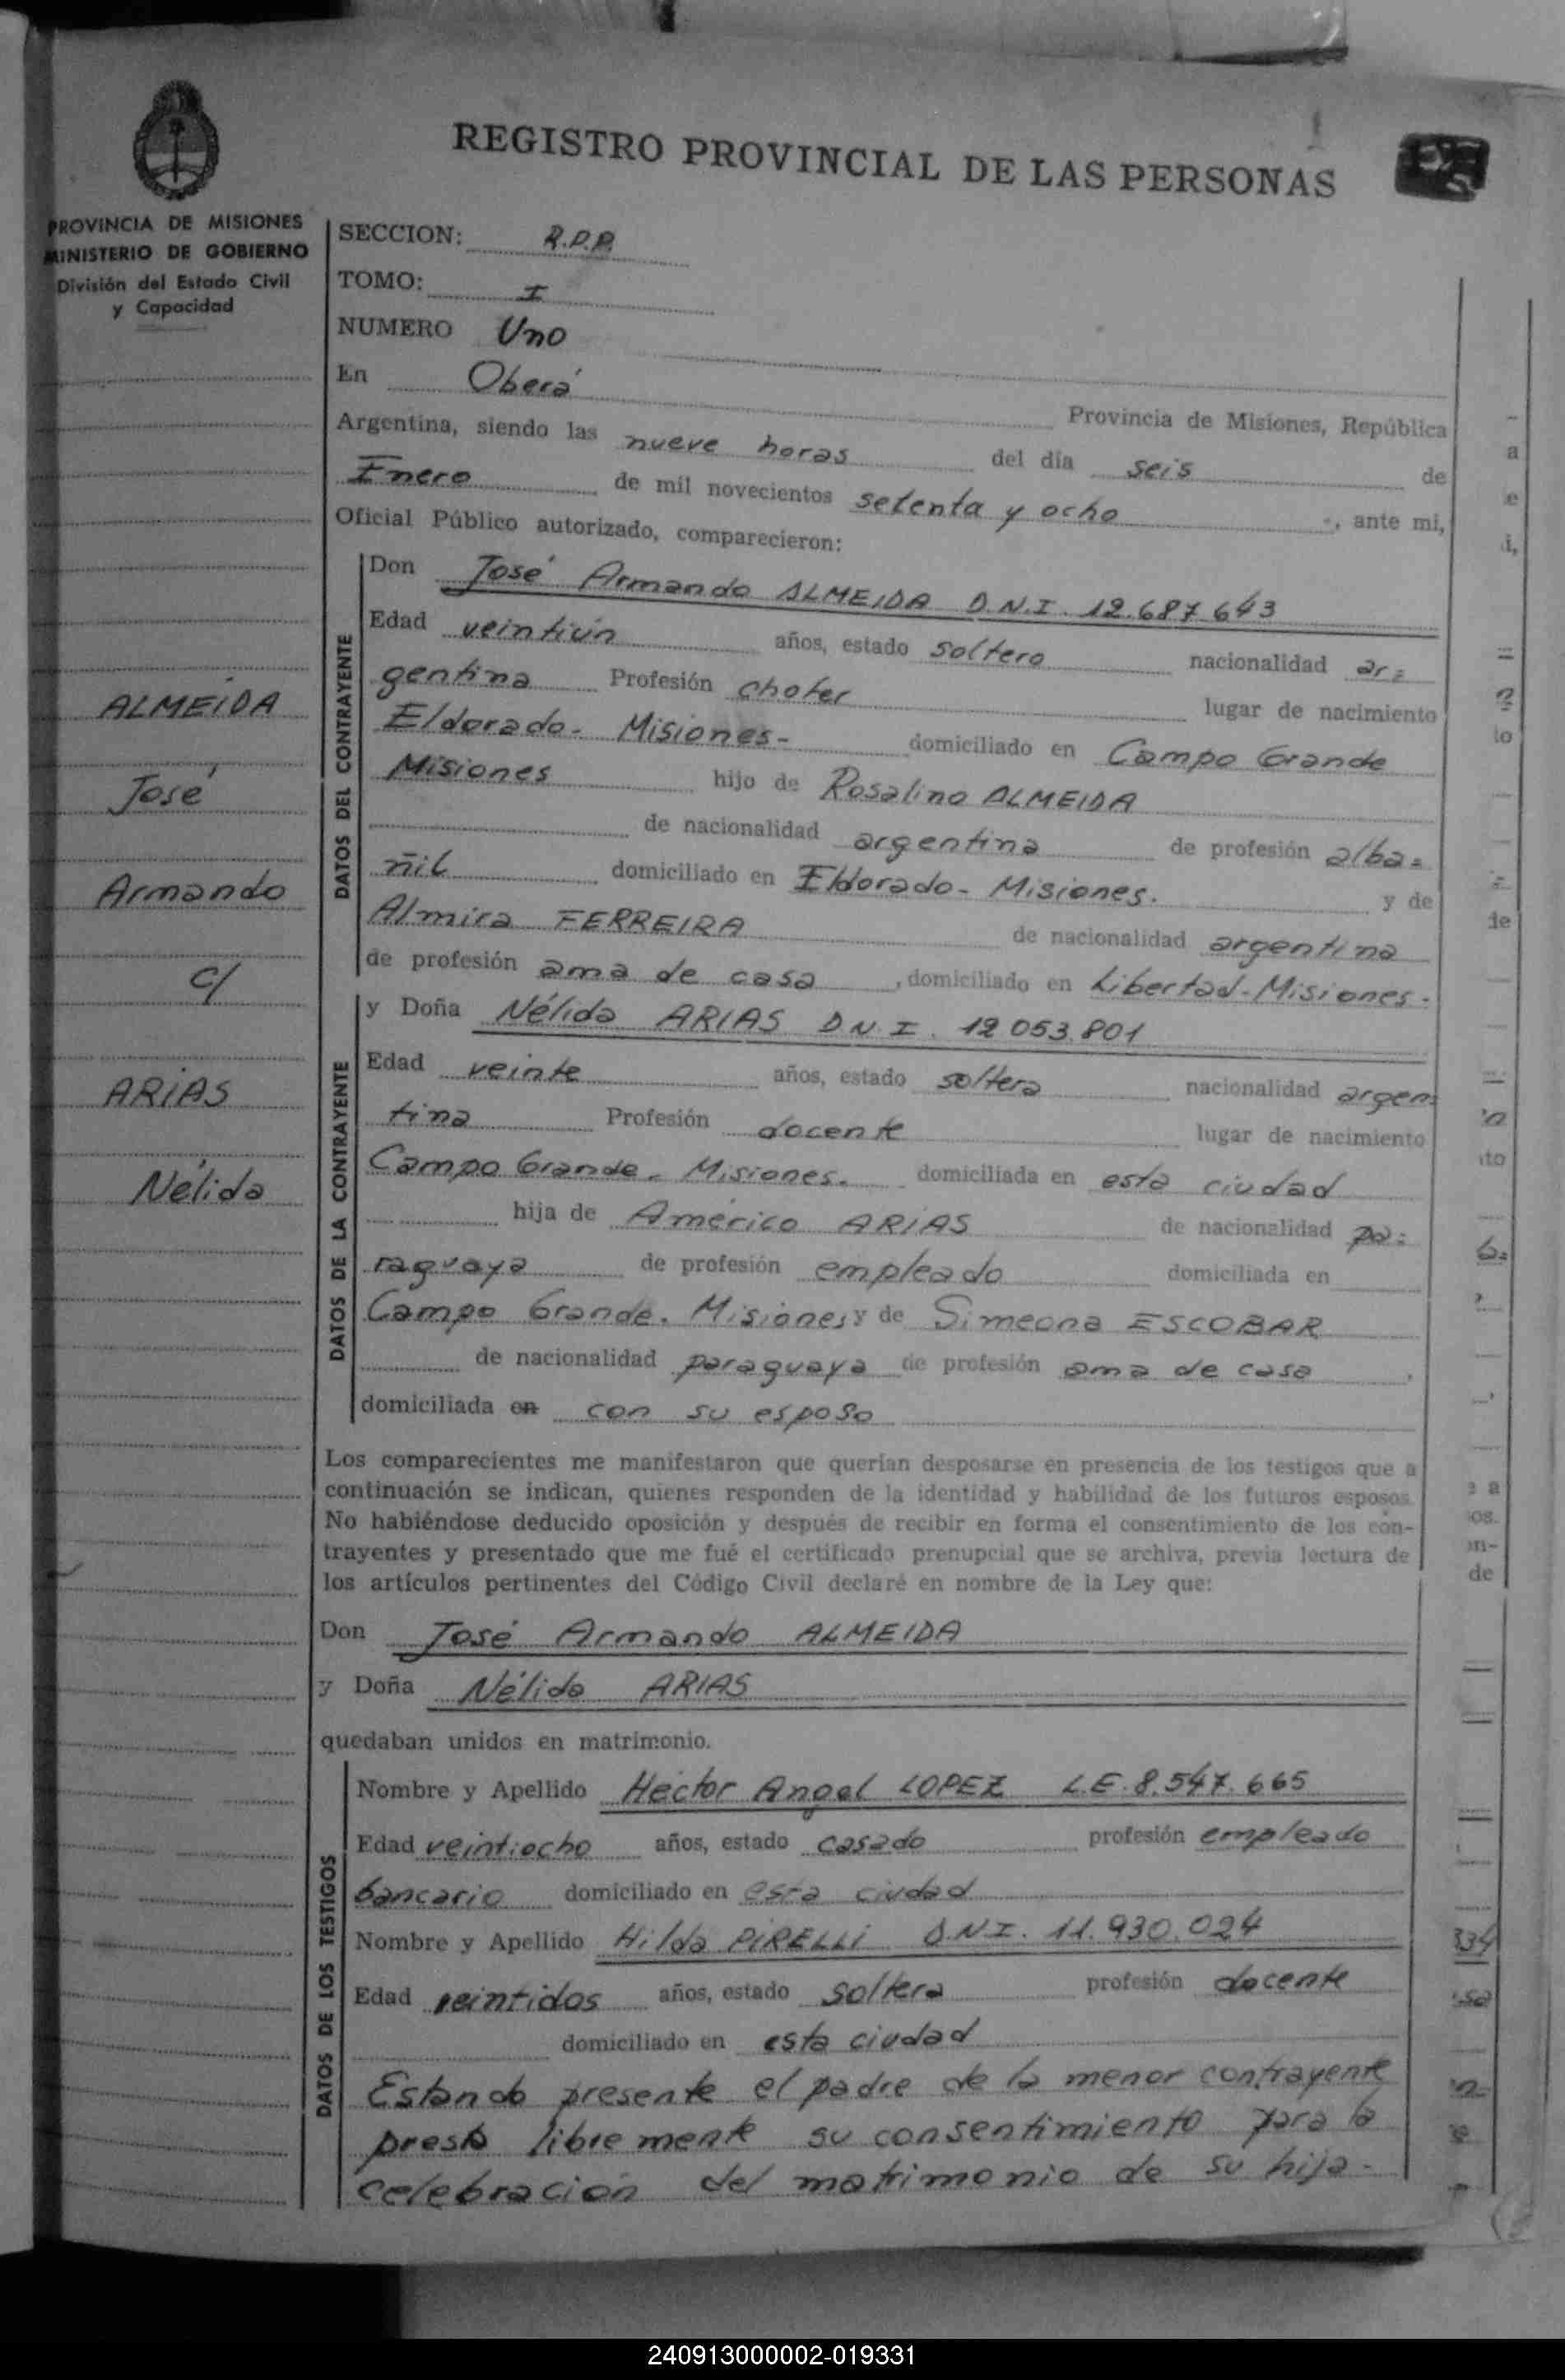 REGISTRO PROVINCIAL DE LAS PERSONAS
PROVINCIA DE MISIONES
MINISTERIO DE GOBIERNO
División del Estado Civil
y Capacidad
SECCION: R.P.P.
TOMO: I
NUMERO Uno
En Oberá
Provincia de Misiones, República
Argentina, siendo las nueve horas del día seis de
Enero de mil novecientos setenta y ocho, ante mi,
Oficial Público autorizado, comparecieron:
ALMEIDA
José
Armando
c/
ARIAS
Nélida
DATOS DEL CONTRAYENTE
Don José Armando ALMEIDA D.N.I. 12.687.643
Edad veintiún años, estado soltero nacionalidad ar=
gentina Profesión chofer lugar de nacimiento
Eldorado- Misiones- domiciliado en Campo Grande
Misiones hijo de Rosalino ALMEIDA
de nacionalidad argentina de profesión alba=
ñil domiciliado en Eldorado- Misiones. y de
Almira FERREIRA de nacionalidad argentina
de profesión ama de casa, domiciliado en Libertad-Misiones-
DATOS DE LA CONTRAYENTE
y Doña Nélida ARIAS D.N.I. 12.053.801
Edad veinte años, estado soltera nacionalidad argen=
tina Profesión docente lugar de nacimiento
Campo Grande- Misiones. domiciliada en esta ciudad
hija de Américo ARIAS de nacionalidad pa=
raguaya de profesión empleado domiciliada en
Campo Grande. Misiones y de Simeona ESCOBAR
de nacionalidad paraguaya de profesión ama de casa,
domiciliada en con su esposo
Los comparecientes me manifestaron que querían desposarse en presencia de los testigos que a
continuación se indican, quienes responden de la identidad y habilidad de los futuros esposos.
No habiéndose deducido oposición y después de recibir en forma el consentimiento de los con-
trayentes y presentado que me fué el certificado prenupcial que se archiva, previa lectura de
los artículos pertinentes del Código Civil declaré en nombre de la Ley que:
Don José Armando ALMEIDA
y Doña Nélida ARIAS
quedaban unidos en matrimonio.
DATOS DE LOS TESTIGOS
Nombre y Apellido Héctor Angel LOPEZ L.E. 8.547.665
Edad veintiocho años, estado casado profesión empleado
bancario domiciliado en esta ciudad
Nombre y Apellido Hilda PIRELLI D.N.I. 11.930.024
Edad veintidos años, estado soltera profesión docente
domiciliado en esta ciudad
Estando presente el padre de la menor contrayente
presta libremente su consentimiento para la
celebración del matrimonio de su hija-
240913000002-019331